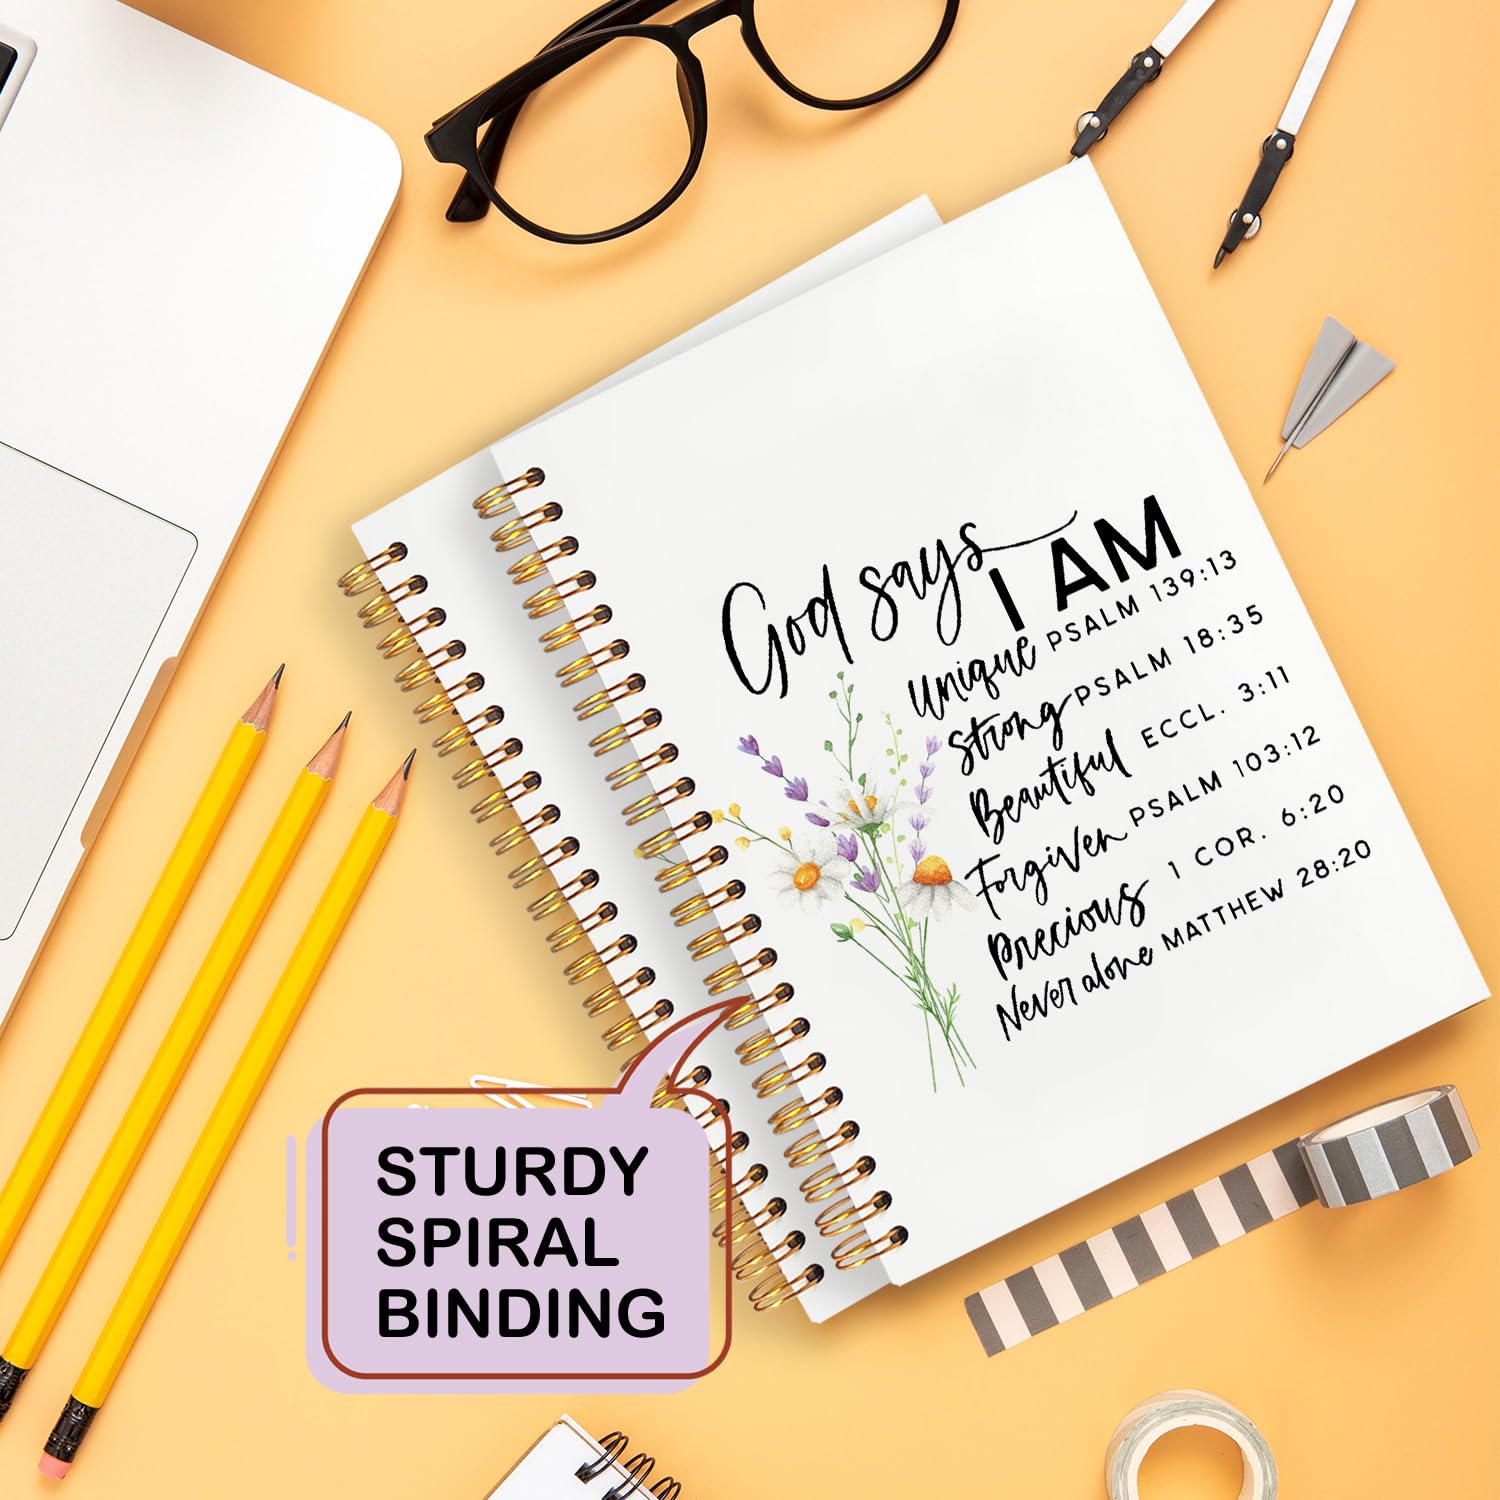 God says
I AM
Unique PSALM 139:13
Strong PSALM 18:35
Beautiful ECCL. 3:11
Forgiven PSALM 103:12
Precious 1 COR. 6:20
Never alone MATTHEW 28:20
STURDY
SPIRAL
BINDING